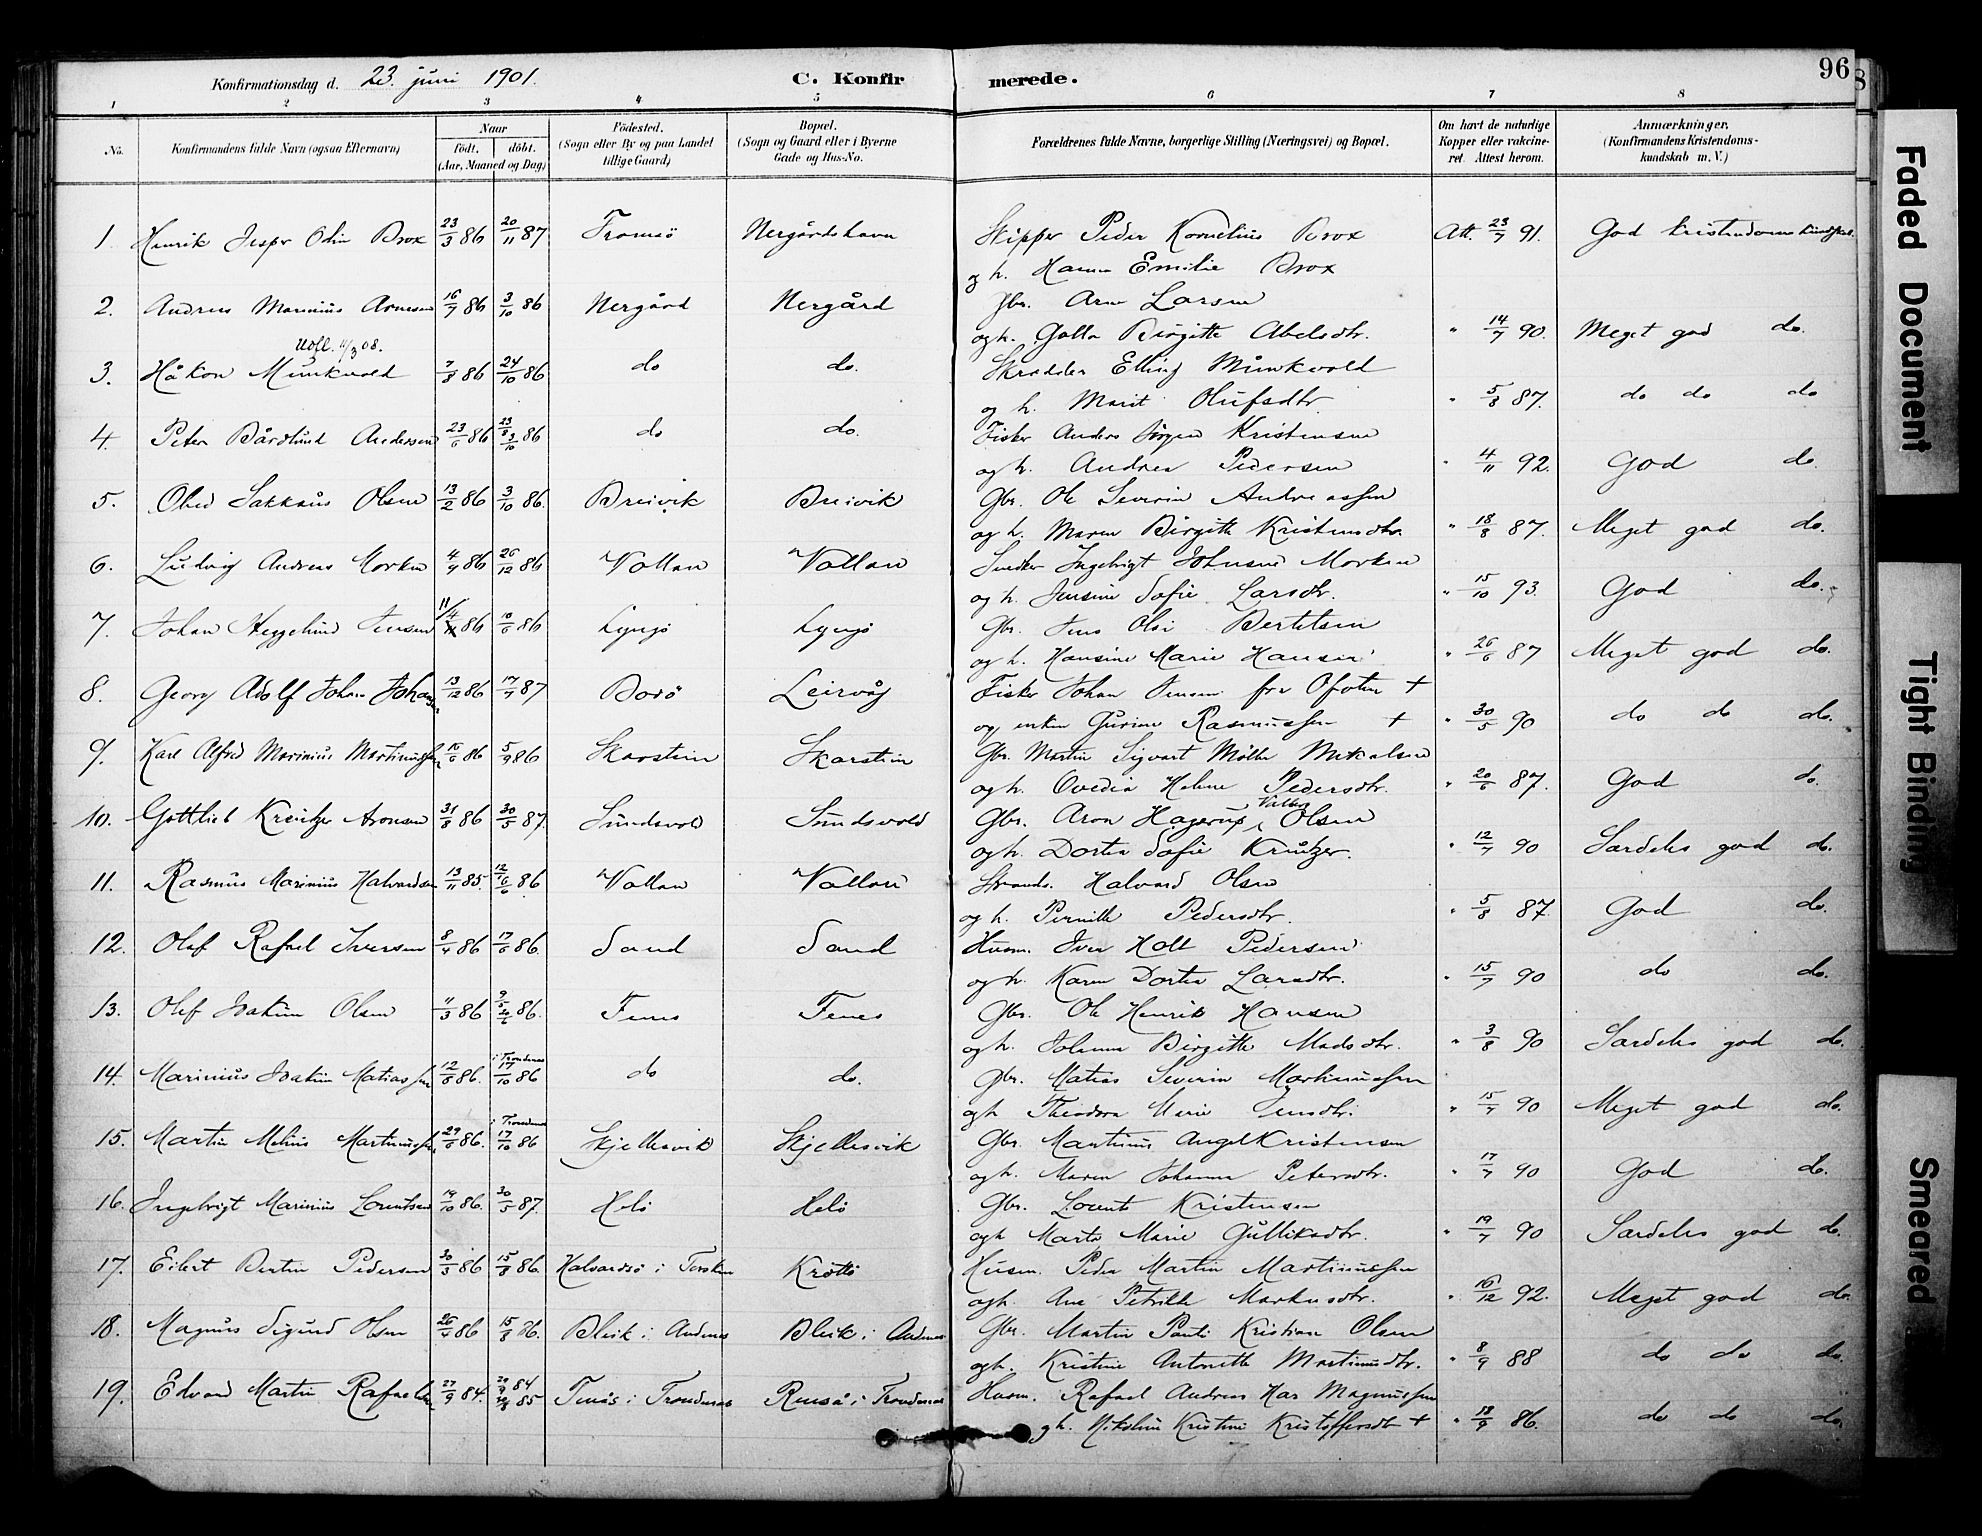 96
Konfirmationsdag d. 23. juni 1901. C. Konfirmerede.
1 2 3 4 5 6 7 8
No. Konfirmandens fulde Navn (ogsaa Efternavn) Naar født. døbt. (Aar, Maaned og Dag) Fødested. (Sogn eller By og paa Landet tillige Gaard) Bopæl. (Sogn og Gaard eller i Byerne Gade og Hus-No. Forældrenes fulde Navne, borgerlige Stilling (Næringsvei) og Bopæl. Om havt de naturlige Kopper eller vakcineret. Attest herom. Anmærkninger. (Konfirmandens Kristendomskundskab m. V.)
1 Henrik Jesper Odin Brox 23/3 86 20/11 87 Tromsö Nergårdshavn Skipper Peder Kornelius Brox Att. 23/7 91. God kristendomskundskab.
og h. Hanna Emilie Brox
2. Andreas Marinius Arnesen 16/7 86 3/10 86 Nergård Nergård Gbr. Arn Larsen
og h. Golla Birgitte Abelsdtr. " 14/7 90. Meget god do.
Udfl. 11/3 08.
3. Håkon Munkvold 7/8 86 24/10 86 do do. Skrædder Elling Munkvold
og h. Marit Olufsdtr. " 5/8 87. do do do
4. Peter Bårdlund Andersen 23/6 86 23/8 3/10 86 do do. Fisker Anders Jörgen Kristensen
og h. Andrea Pedersen " 4/11 92. God do.
5. Obed Sakkæus Olsen 13/2 86 3/10 86. Breivik Breivik Gbr. Ole Severin Andreassen
og h. Maren Birgitte Kristensdtr. " 18/8 87. Meget god do.
6. Ludvig Andreas Morken 4/9 86 26/12 86 Vollan Vollan Snedker Ingebrigt Johnsen Morken
og h. Jensine Sofie Larsdtr. " 15/10 93. God do.
7. Johan Heggelund Jensen 11/4 86 10/6 86 Lyngö Lyngö Gbr. Jens Olai Bertelsen
og h. Hansine Marie Hansen " 26/6 87 Meget god do.
8. Georg Adolf Johan Johansen 13/12 86 17/7 87 Bodö Leirvåg Fisker Johan Jensen fra Ofoten +
og enken Gurine Rasmussen + " 30/5 90 do do do.
9. Karl Alfred Marinius Martinussen 10/6 86 5/9 86 Skarstein Skarstein Gbr. Martin Sigvart Möller Mikalsen
og h. Ovedia Helene Pedersdtr. " 20/6 87. God do.
10. Gottlieb Kreutzer Aronsen 31/8 86 30/5 87. Sundsvold Sundsvold Gbr. Aron Hagerup Olsen
og h. Dortea Sofie Krutzer. " 12/7 90 Særdeles god do.
11. Rasmus Marinius Halvardsen 13/11 85. 86 Vollan Vollan Strands. Halvard Olsen
og h. Pernille Pedersdtr. " 5/8 87. God do.
12. Olaf Rafael Iversen 8/4 86 17/6 86. Sand Sand Husm. Iver Holt Pedersen
og h. Karen Dortea Larsdtr. " 15/7 90 do do.
13. Olef Joakim Olsen 11/3 86 86. Fenes Fenes Gbr. Ole Henrik Hansen
og h. Johanna Birgitte Madsdtr. " 3/8 90 Særdeles god do.
14. Marinius Joakim Matiassen 12/8 86. i Trondenes 17/10 86 do do. Gbr. Matias Severin Martinussen
og h Theodora Marie Jensdtr. " 15/7 90 Meget god do.
15. Martin Melius Martinussen 29/6 86. i Trondenes 17/10 86 Skjellesvik Skjellesvik Gbr. Martinus Angel Kristensen
og h. Maren Johanna Petersdtr. " 17/7 90 God do.
16. Ingebrigt Marinius Lorentsen 19/10 86. 30/5 87. Helö Helö Gbr. Lorents Kristensen
og h Marta Marie Gulliksdtr. " 19/7 90 Særdeles god do.
17. Eilert Bertin Pedersen 30/3 86 15/8 86. Halvardsö i Torsken Kröttö Husm. Peder Martin Martinussen
og h. Ane Petrikke Markusdtr. " 16/12 92. Meget god do.
18. Magnus Sigurd Olsen 26/4 86 15/8 86. Bleik i Andenes Bleik i Andenes Gbr. Martin Pauli Kristian Olsen
og h. Kristine Antonette Martinusdtr. " 8/9 88 do do do.
19. Edvard Martin Rafaelsen 27/9 84. 84 85 i Trondenes i Trondenes Husm. Rafael Andreas Magnussen
og h. Nikoline Kristine Kristoffersdtr + " 18/9 86. do do do.
Faded Document
Tight Binding
Smeared